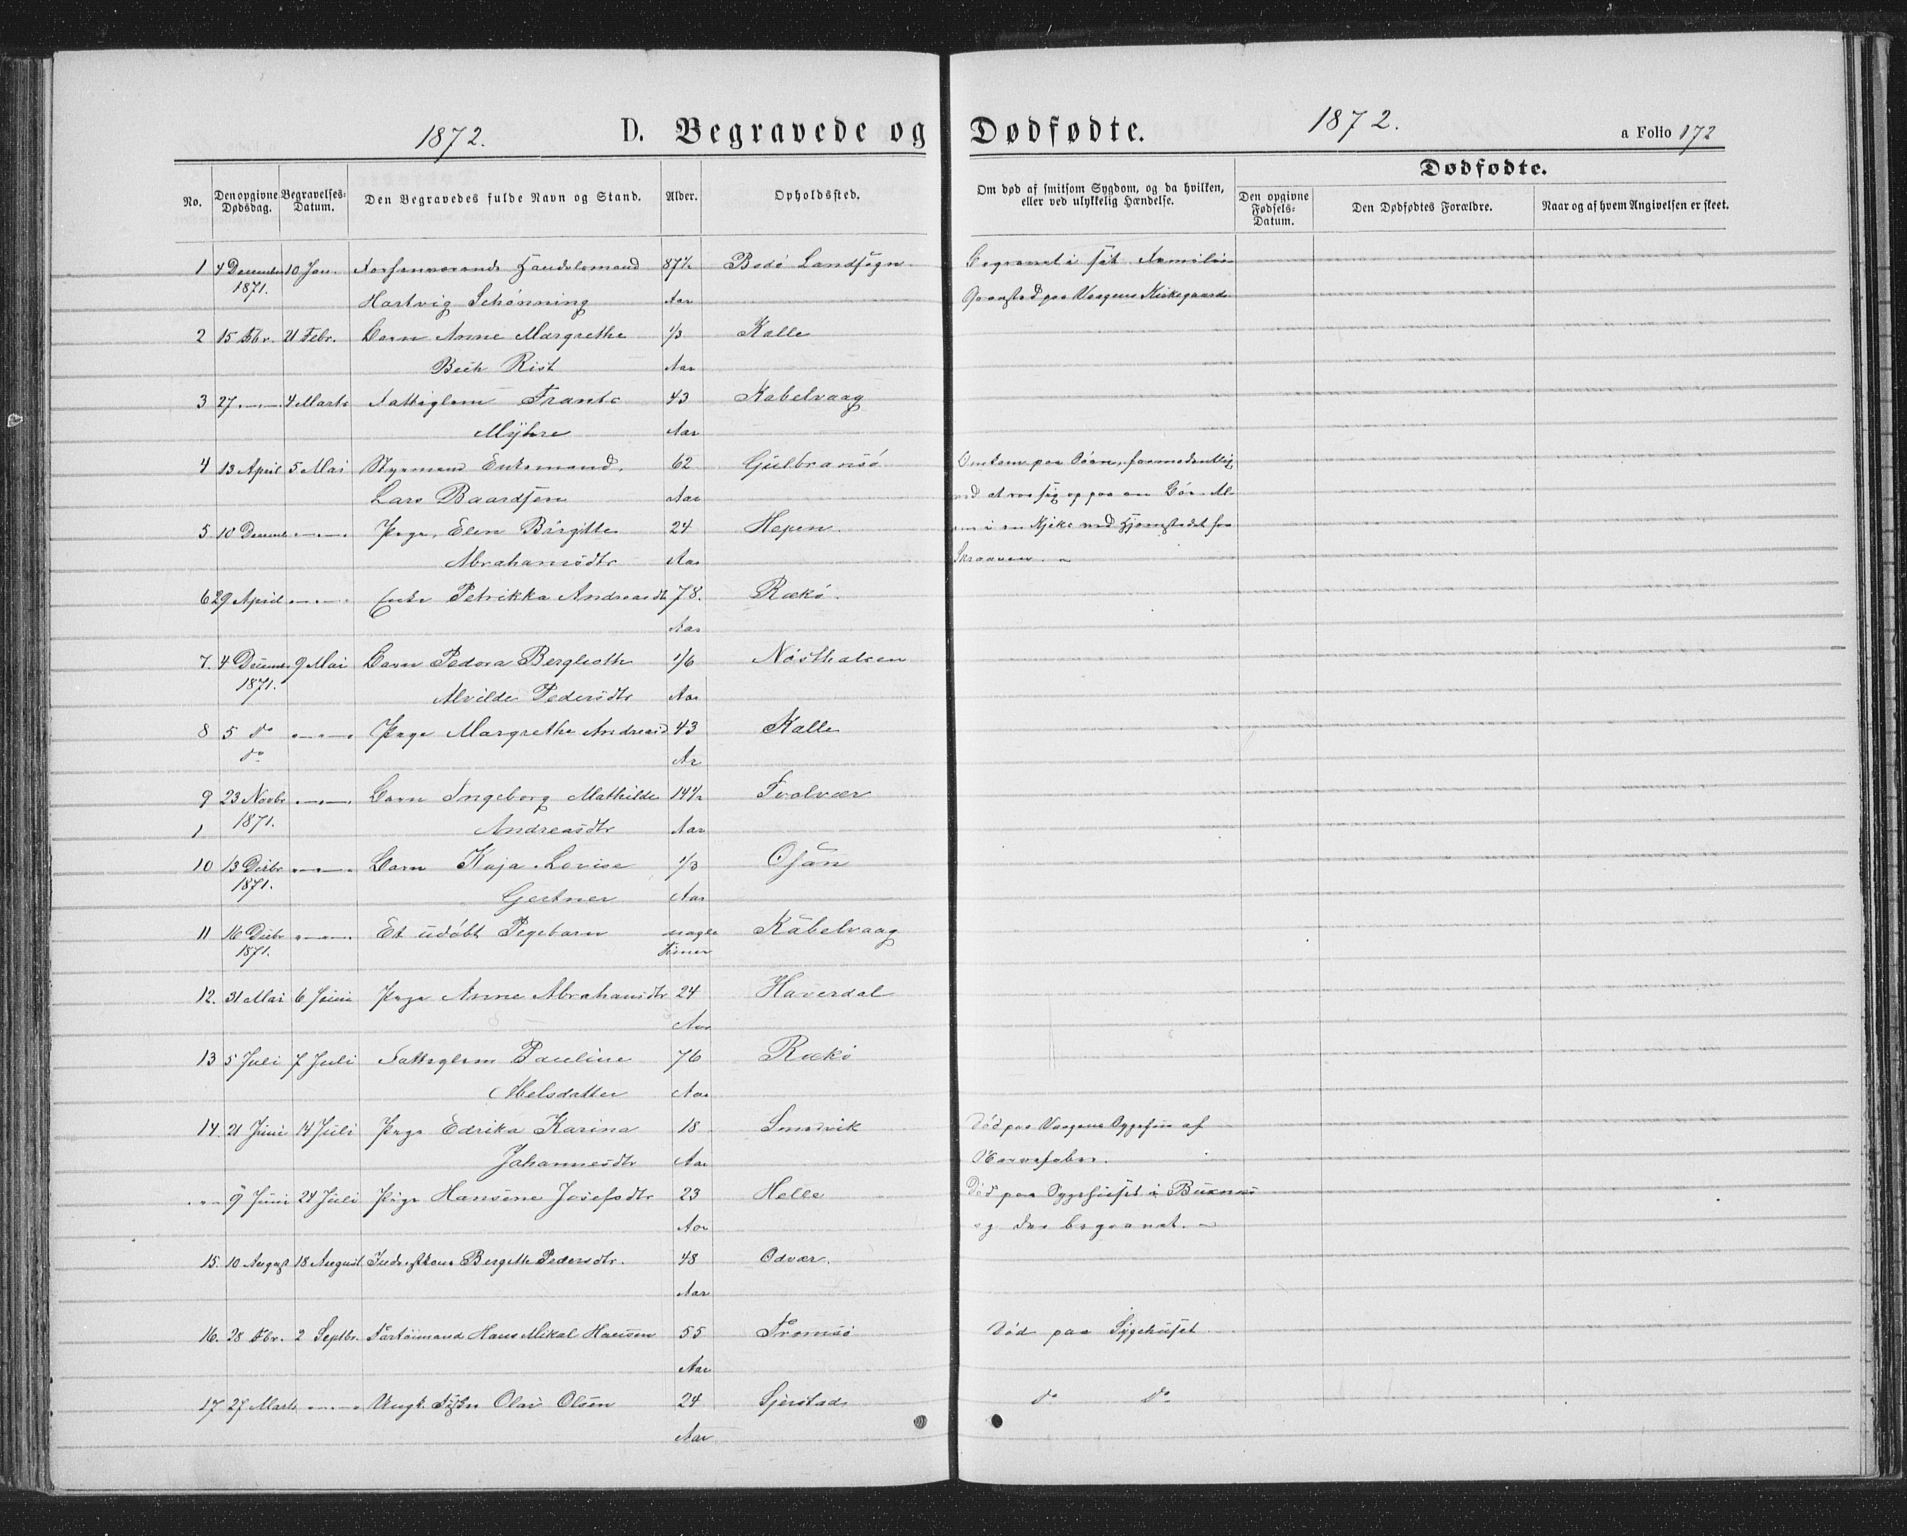 1872. D. Begravede og Dødfødte. 1872. a Folio 172
No. Den opgivne Dødsdag. Begravelses-Datum. Den Begravedes fulde Navn og Stand. Alder. Opholdssted. Om død af smitsom Sygdom, og da hvilken, eller ved ulykkelig Hændelse. Dødfødte.
Den opgivne Fødsels-Datum. Den Dødfødtes Forældre. Naar og af hvem Angivelsen er skeet.
1 4 December 10 Jan. Forhenværende Handelsmand 87½ Bodø Landsogn Begravet i sit Familie
1871. Hartvig Schønning Aar Gravsted paa Vaagens Kirkegaard
2 15 Fbr. 21 Febr. Barn Anne Margrethe 1/3 Kalle
Bech Rist Aar
3 27 —"— 4 Marts Fattiglem Frants 43 Kabelvaag
Myhre Aar
4 13 April 5 Mai Styrmand Enkemand, 62 Gulbransø Omkom paa Søen, formodentlig
Lars Baardsen Aar
5 10 Decemb —"— Pige, Elen Birgitte 24 Hopen
Abrahamsdtr Aar Skraaven.
6 29 April —"— Enke Petrikka Andreasdtr 78. Rækø.
Aar
7. 4 Decembr 9 Mai Barn Pedora Bergleoth 1/6 Nøstholsen
1871. Alvilde Pedersdtr Aar
8 5 do —"— Pige Margrethe Andreasd 43 Kalle
do Ar
9 23 Novbr —"— Barn Ingeborg Mathilde 14½ Svolvær
1 1871. Andreasdtr Aar
10 13 Decbr —"— Barn Kaja Lovise 1/3 Osan
1871. Gertner Aar
11 16 Decbr —"— Et udøbt Pigebarn nogle Kabelvaag
1871. Timer
12. 31 Mai 6 Juni Pige Anne Abrahamsdtr 24 Haverdal
Aar
13 5 Juli 7 Juli Fattiglem Pauline 76 Rækø
Abelsdatter Aar
14. 21 Juni 14 Juli Pige Edrika Karina 18 Smedvik Død paa Vaagens Sygehus af
Johannesdtr Aar Nervefeber.
"" 9 Juni 24 Juli Pige Hansine Josefsdtr 23 Helle Død paa Sygehuset i Buxnæs
Aar og der begravet.
15. 10 August 18 August Inderstkone Bergitte Pedersdtr. 48 Odvær.
Aar
16. 28 Fbr. 2 Septbr. Fartøimand Hans Mikal Hansen 55 Tromsø Død paa Sygehuset
Aar
17 27 Marts —"— Ungk. Fisker Olai Olsen 24 Sjerstad do do
Aar